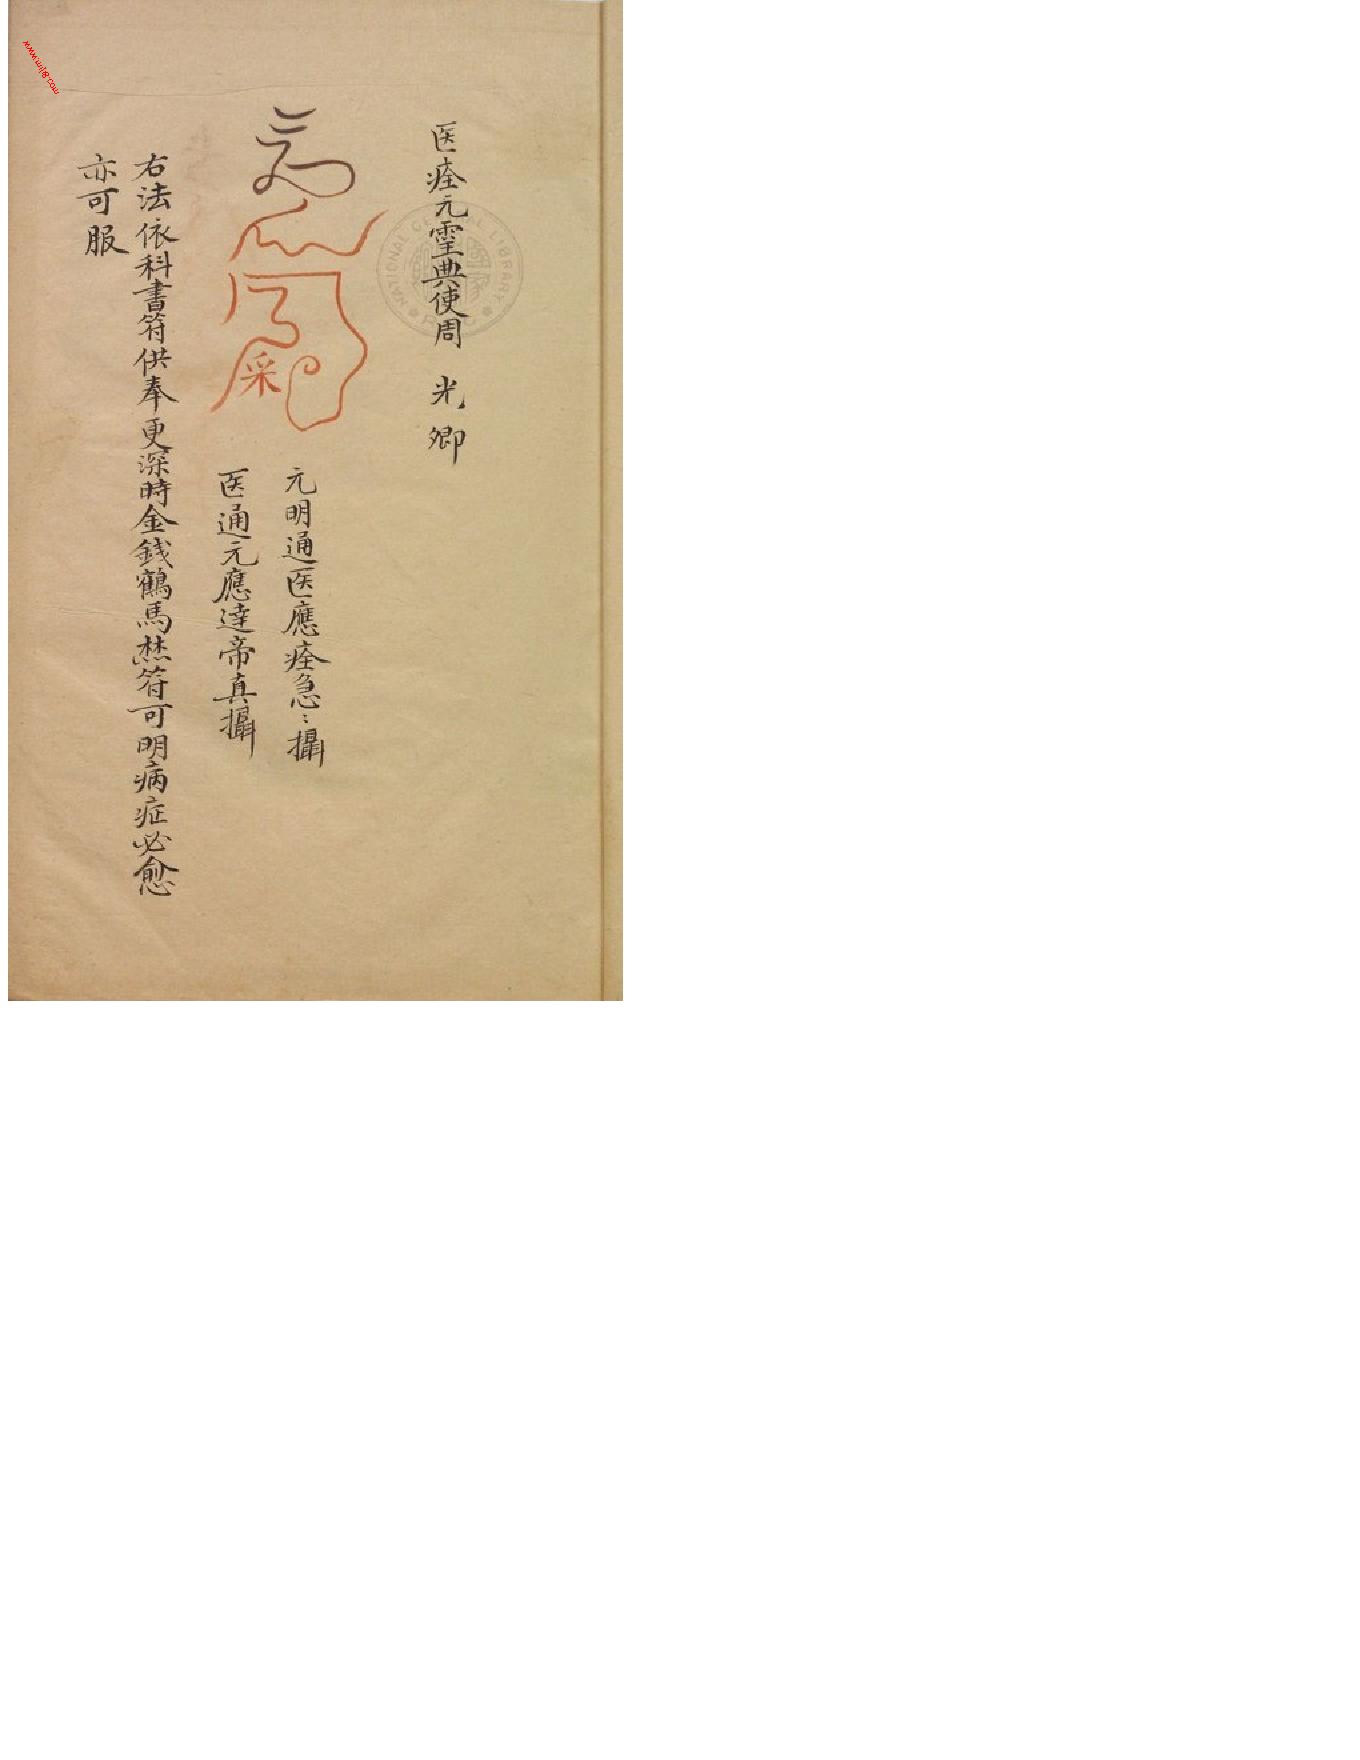 医痊元霊典使周 光 卿
采
元明通医應痊急〻攝
医通元應達帝真攝
右法依科書符供奉更深時金錢鶴馬焚符可明病症必愈
亦可服
NATIONAL CENTRAL LIBRARY
www.mlj8.com